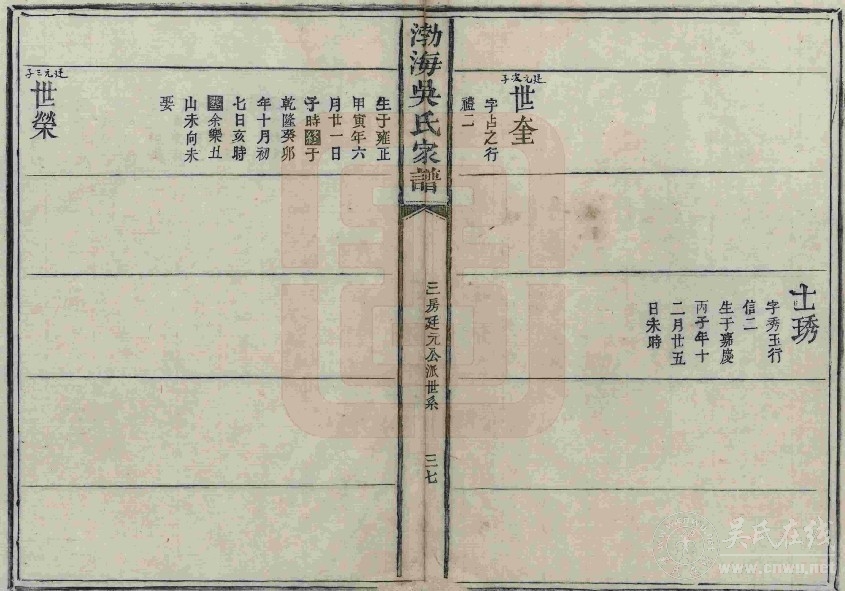 士琇
字秀玉行
信二
生于嘉慶
丙子年十
二月廿五
日未時
廷元次子
世奎
字占之行
禮二
渤海吳氏家譜
三房廷元公派世系
三七
生于雍正
甲寅年六
月廿一日
子時終于
乾隆癸卯
年十月初
七日亥時
塟余樂丑
山未向未
娶
廷元三子
世榮
吳氏在线
www.cnwu.net